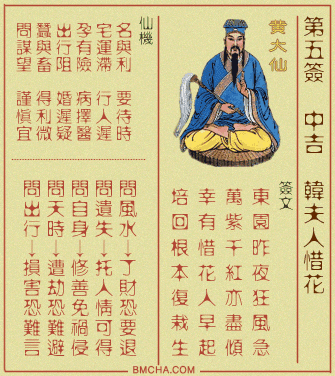 第五簽 中吉 韓夫人惜花
黃大仙
簽文
東園昨夜狂風急
萬紫千紅亦盡傾
幸有惜花人早起
培回根本復栽生
仙機
名與利 要待時
宅運滯 行人遲
孕有險 病擇醫
出行阻 婚遲疑
蠶與畜 得利微
問謀望 謹慎宜
問風水→了財恐要退
問遺失→托人情可得
問自身→修善免禍侵
問天時→遭劫恐難避
問出行→損害恐難言
BMCHA.COM